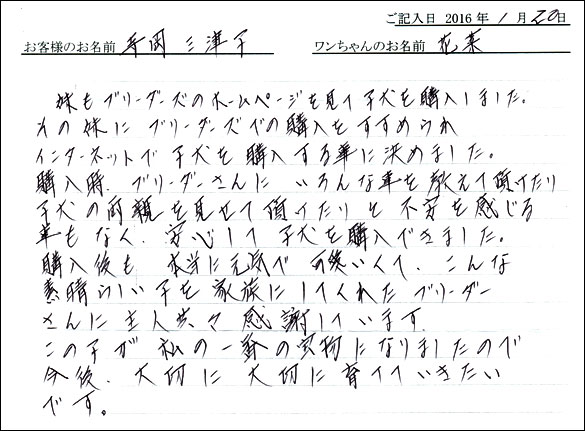 ご記入日 2016年 1月 20日
お客様のお名前 寺岡 三津子 ワンちゃんのお名前 花菜
妹もブリーダーズのホームページを見て子犬を購入しました。
その妹に ブリーダーズでの購入をすすめられ
インターネットで子犬を購入する事に決めました。
購入時、ブリーダーさんに いろんな事を教えて頂けたり
子犬の両親を見せて頂けたりと不安を感じる
事もなく、安心して子犬を購入できました。
購入後も 本当に元気で 可愛いくて、こんな
素晴らしい子を家族にしてくれたブリーダー
さんに主人共々 感謝しています。
この子が 私の一番の宝物になりましたので
今後、大切に 大切に育てていきたい
です。